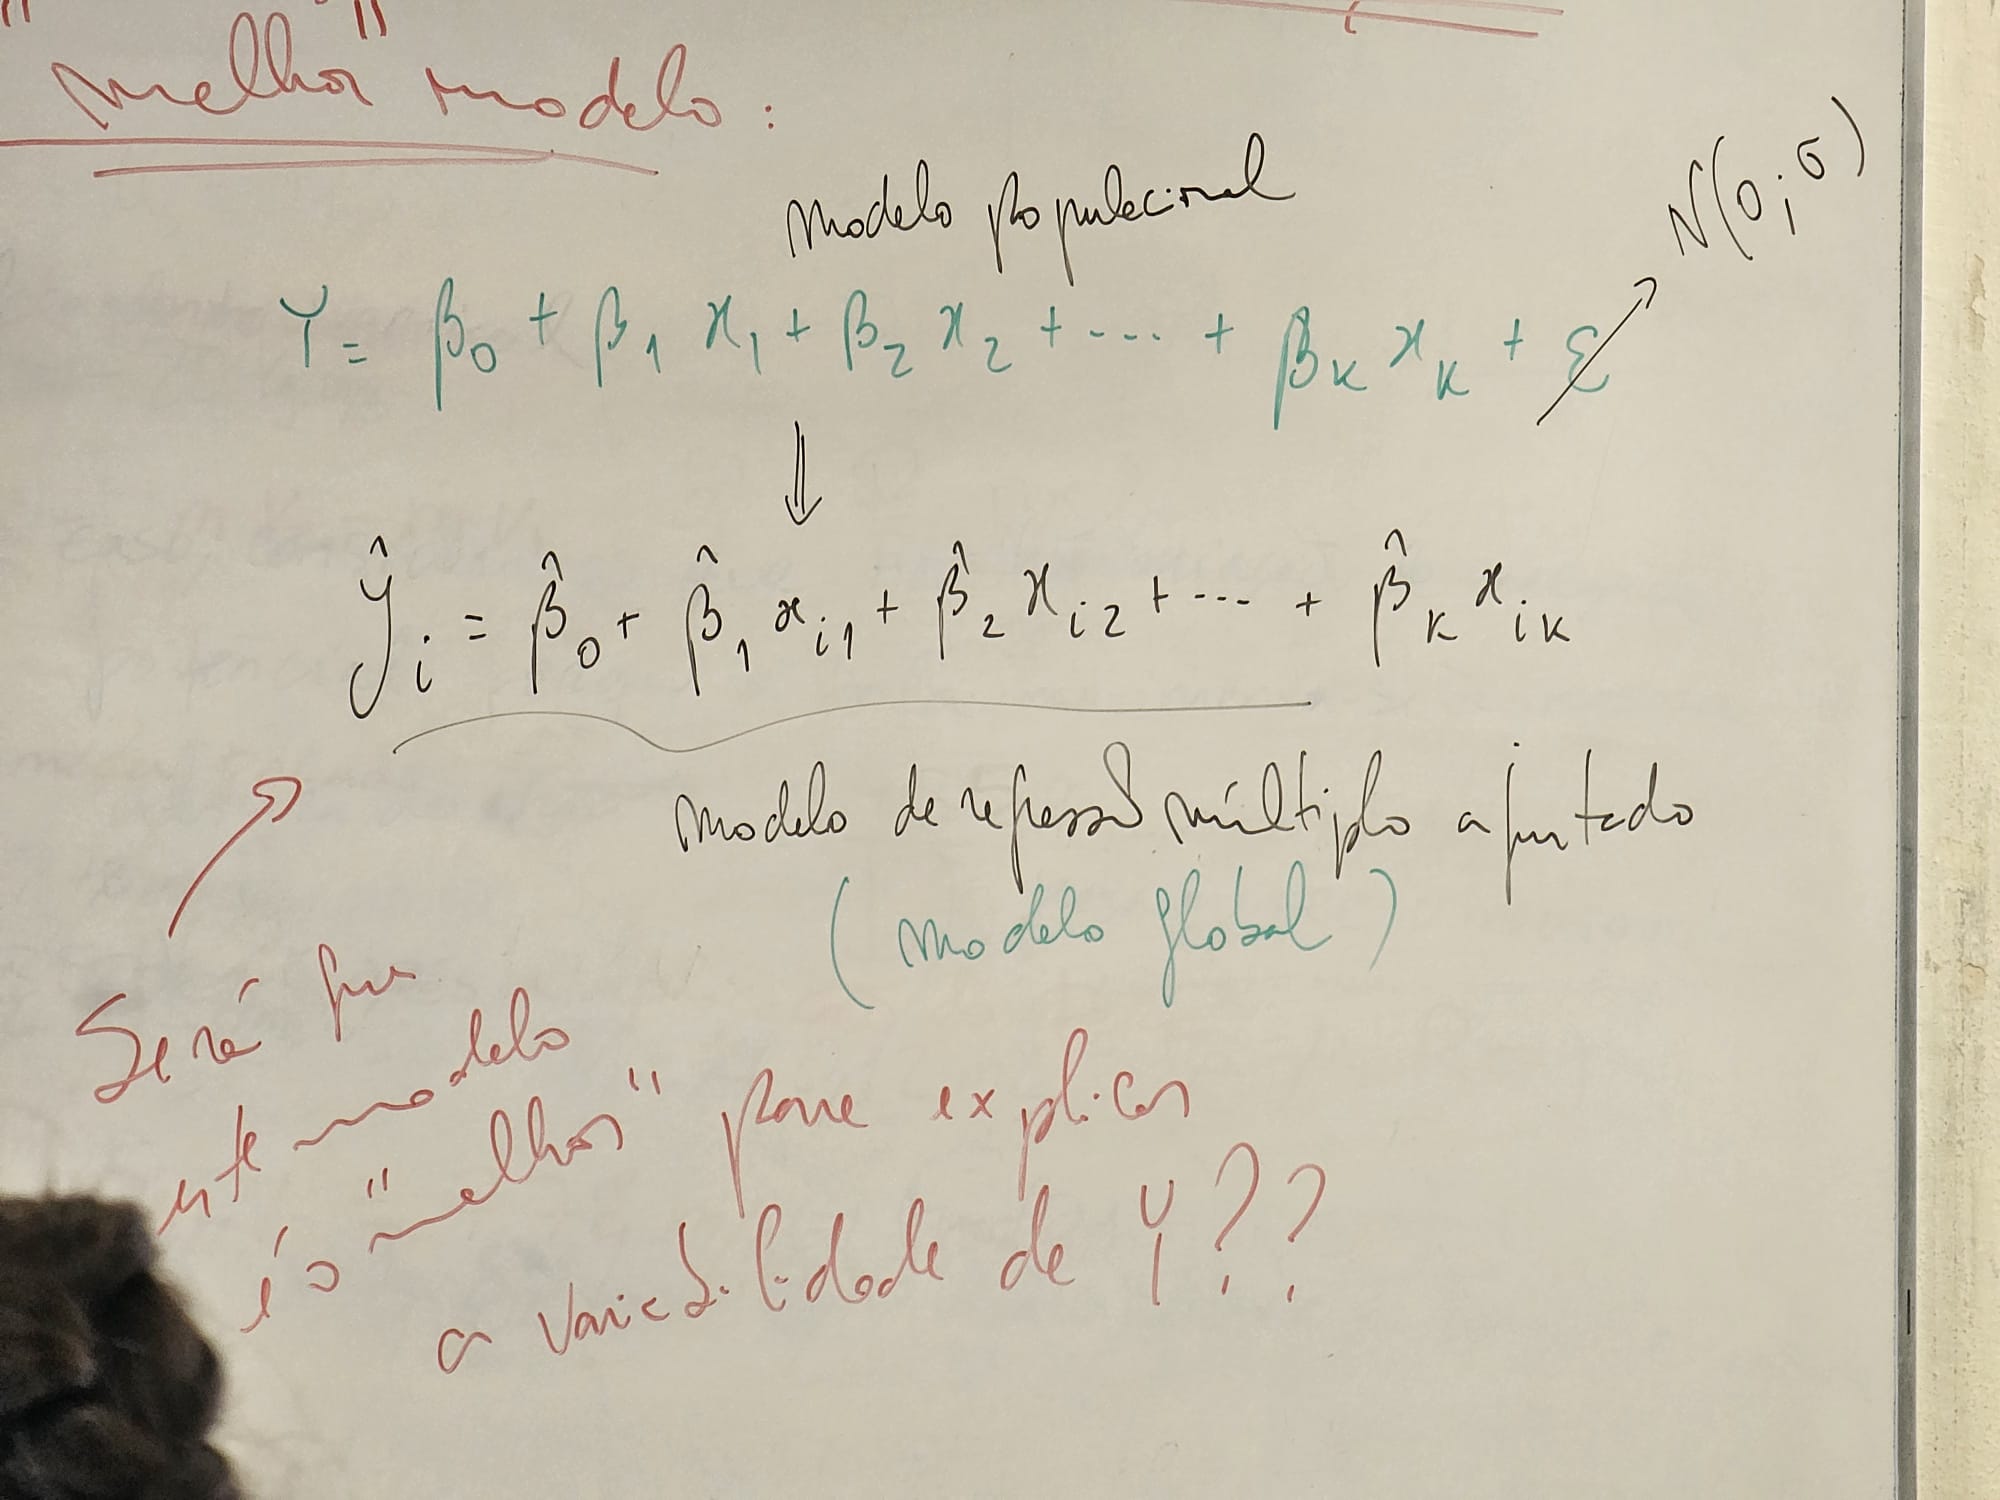 "melhor" modelo:
modelo populacional
N(0; σ)
Y = β₀ + β₁ x₁ + β₂ x₂ + ---- + βₖ xₖ + ε
⇓
ŷᵢ = β̂₀ + β̂₁ xᵢ₁ + β̂₂ xᵢ₂ + --- + β̂ₖ xᵢₖ
modelo de regressão múltiplo ajustado
(modelo global)
Será que
este modelo
é o "melhor" para explicar
a variabilidade de Y??